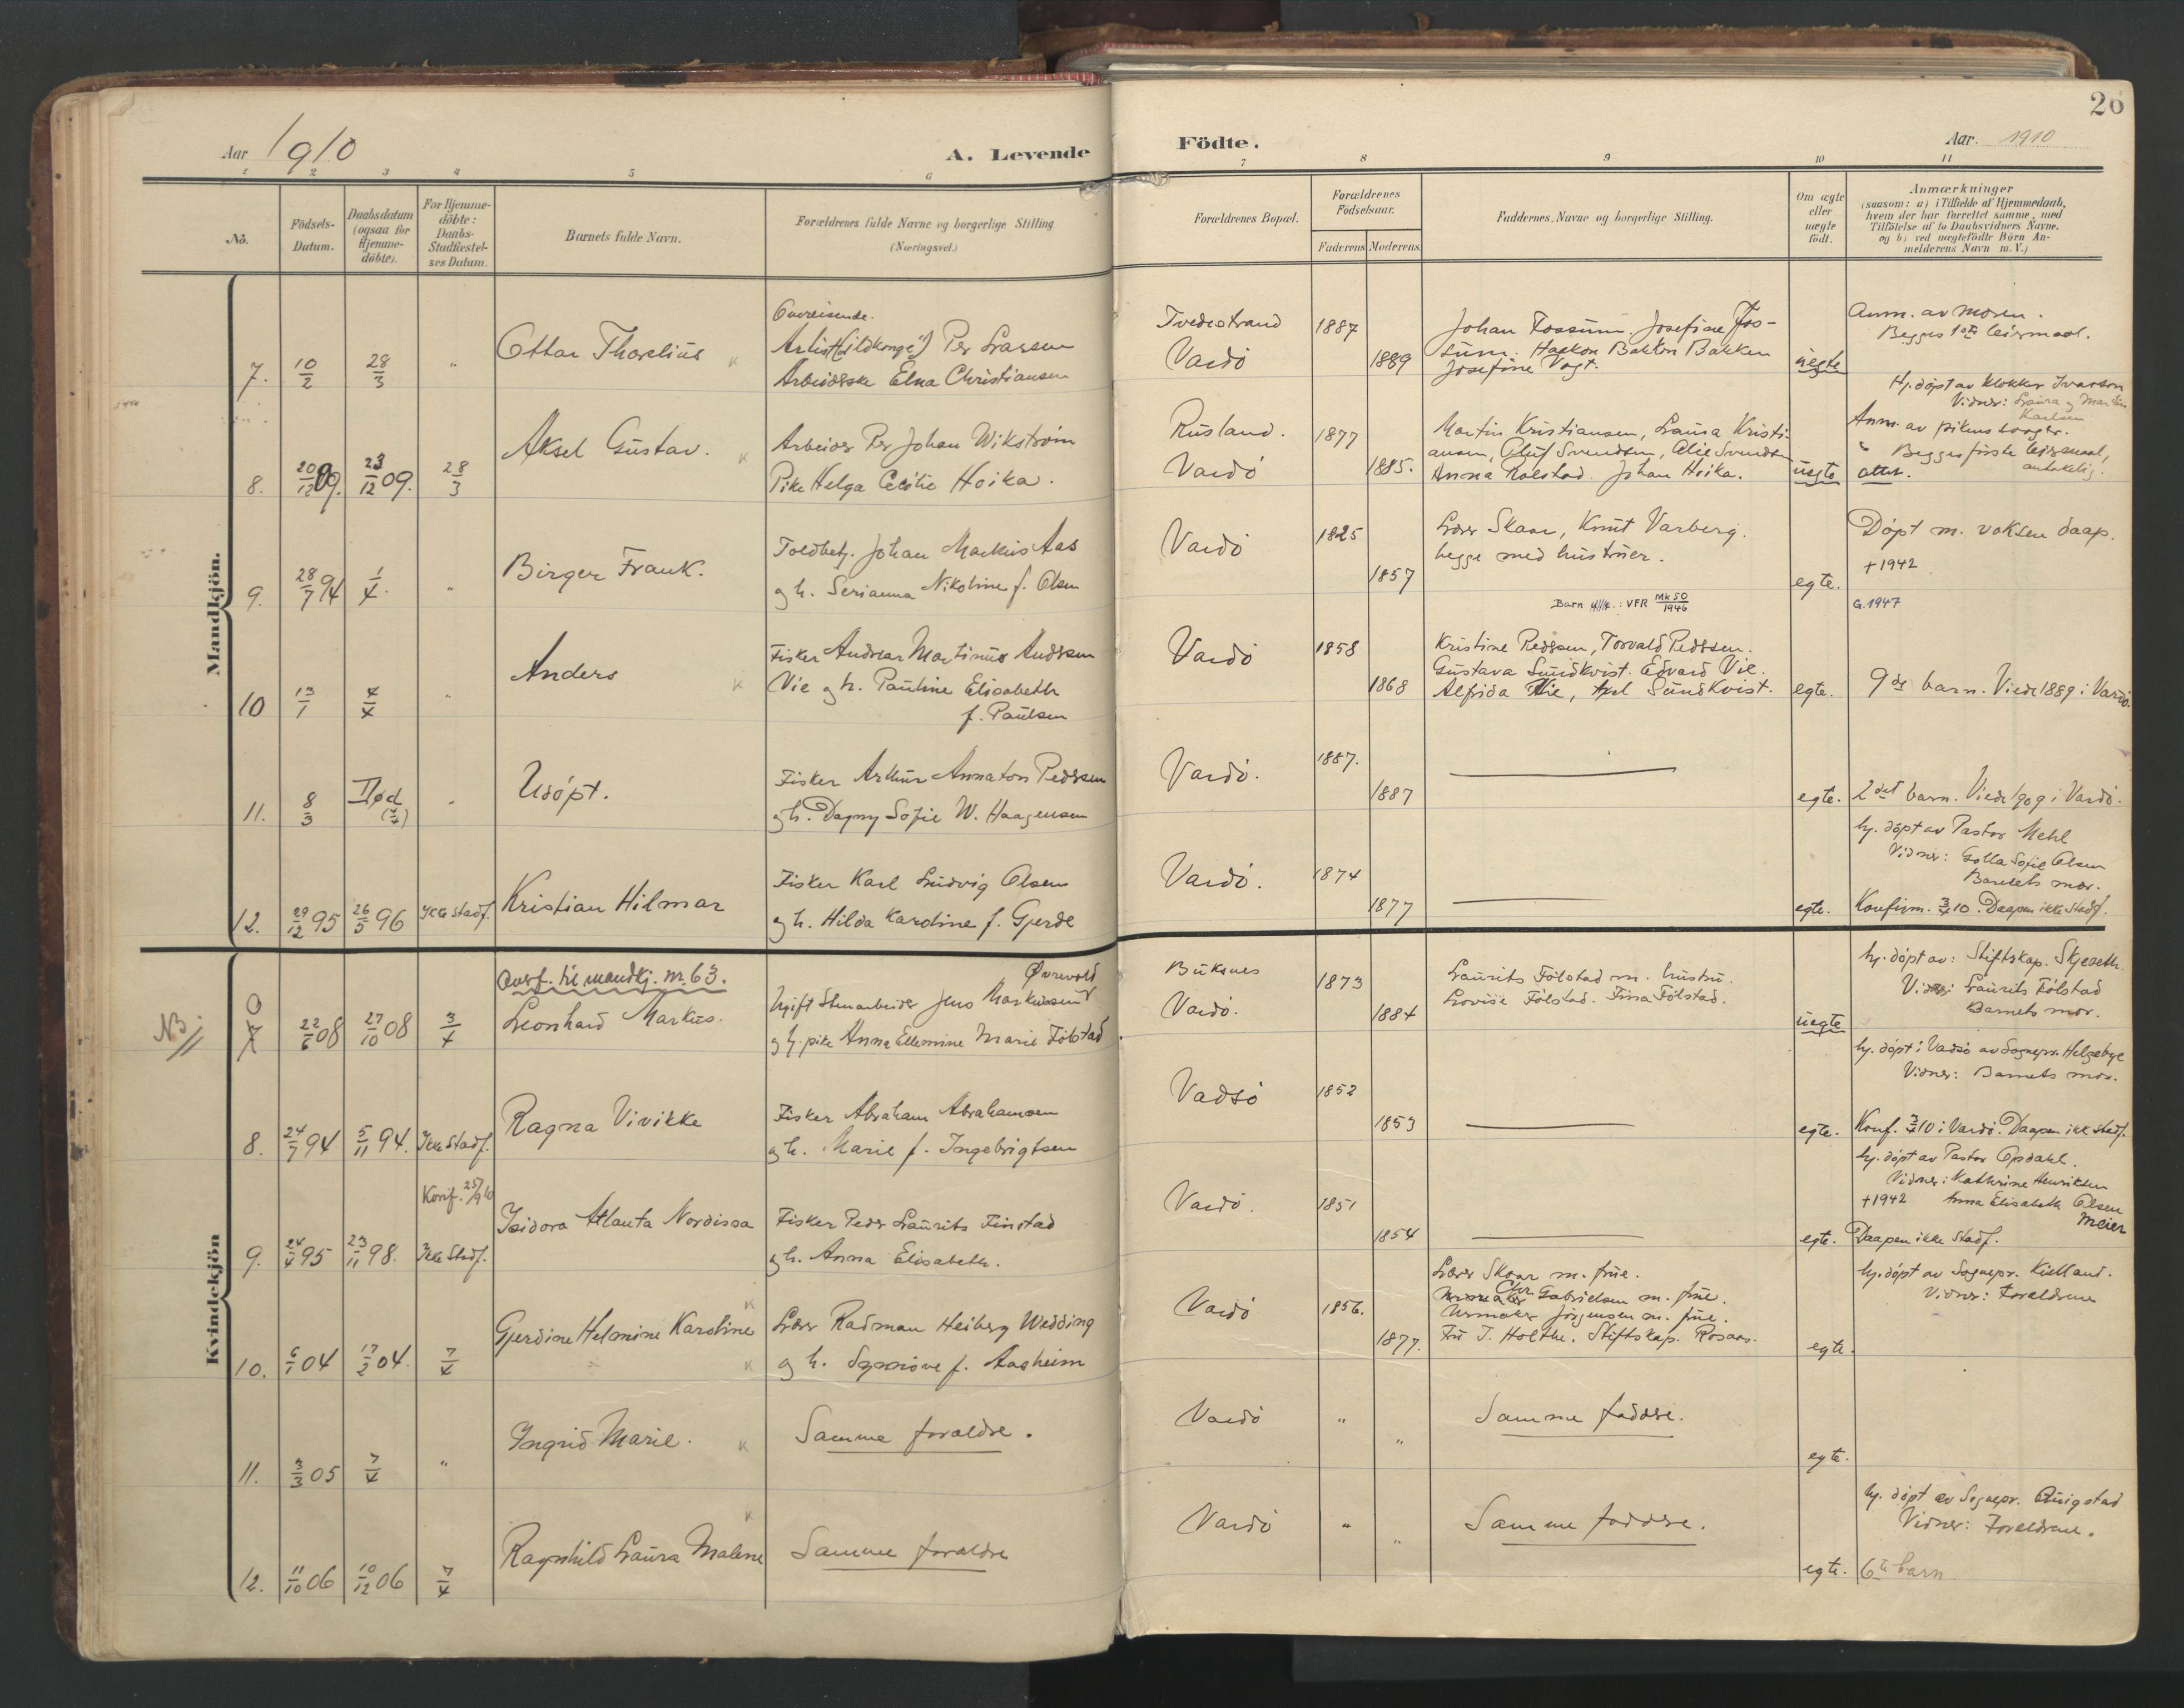 Aar 1910
A. Levende
Födte.
Aar. 1910
26
1 2 3 4 5 6 7 8 9 10 11
No.
Födsels-Datum.
Daabsdatum (ogsaa for Hjemme-döbte).
For Hjemme-döbte: Daabs-Stadfæstel-ses Datum.
Barnets fulde Navn.
Forældrenes fulde Navne og borgerlige Stilling
(Næringsvei.)
Forældrenes Bopæl.
Forældrenes Födselsaar.
Faderens Moderens
Faddernes Navne og borgerlige Stilling.
Om ægte eller uægte födt.
Anmærkninger
(saasom: a) i Tilfælde af Hjemmedaab, hvem der har forrettet samme, med Tilföielse af to Daabsvidners Navne, og b) ved uægtefödte Börn Anmelderens Navn m. V.)
Mandkjön.
7. 10/2 28/3 "
Ottar Thorelius
Omreisende.
Artist ("Ildkonge") Per Larsen
Arbeiderske Elna Christiansen
Tvedestrand 1887
Vardö 1889
Johan Fossum. Josefine Fos-
sum. Haakon Bakken
Josefine Vogt.
uegte
Anm. av moren.
Begges 1ste leiermaal.
8. 20/12 09. 23/12 09. 28/3
Aksel Gustav.
Arbeider Per Johan Wikström
Pike Helga Cecilie Hoika.
Rusland. 1877
Vardö 1885.
Martin Kristiansen, Laura Kristi-
ansen, Oluf Svendsen, Alie Svendsen
Anna Rolstad. Johan Hoika.
uegte
Hj. döpt av klokker Ivarson
Vidner: Laura og Martin
Karlsen
Anm. av pikens sorger.
Begges förste leiermaal,
antakelig.
att.
9. 28/7 94 1/4. "
Birger Frank.
Toldbetj. Johan Markus Aas
og h. Serianna Nikoline f. Olsen
Vardö 1825
1857
Lærer Skaar, Knut Varberg.
begge med hustruer.
egte.
Döpt m. voksen daap.
+1942
Barn : VFR Mk 50/1946
G. 1947
10 13/1 4/4 "
Anders
Fisker Andreas Martinus Andersen
Vie og h. Pauline Elisabeth
f. Paulsen
Vardö 1858
1868
Kristine Pedersen, Torvald Pedersen.
Gustava Sundkvist. Edvard Vie.
Alfrida Vie, Axel Sundkvist.
egte.
9de barn. Viede 1889 i Vardö.
11. 8/3 Död "
Udöpt.
Fisker Arthur Annaton Pedersen
og h. Dagny Sofie W. Haagensen
Vardö. 1887.
1887
egte.
2det barn. Viede 1909 i Vardö.
12. 29/12 95 26/5 96 Ikke stadf.
Kristian Hilmar
Fisker Karl Ludvig Olsen
og h. Hilda Karoline f. Gjerde
Vardö. 1874
1877
egte.
hj. döpt av Pastor Mehl
Vidner: Golla Sofie Olsen
Barnets mor.
Konfirm. 3/4 10. Daapen ikke stadf.
Kvindekjön
NB.
0
7 22/6 08 27/10 08 3/4
Overf. til mandkj. nr. 63.
Leonhard Markus.
Øverevold
Ugift Stenarbeider Jens Markussen
og g. pike Anna Ellemine Marie Fölstad
Buksnes 1873
Vardö. 1884
Laurits Fölstad m. hustru.
Lovise Fölstad. Finna Fölstad.
uegte
hj. döpt av: Stiftskap. Skjeseth.
Vidner: Laurits Fölstad
Barnets mor.
8. 24/7 94 5/11 94. Ikke stadf.
Ragna Vivikke
Fisker Abraham Abrahamsen
og h. Marie f. Ingebrigtsen
Vadsö 1852
1853
egte.
hj. döpt i Vadsö av Sognepr. Helgebye
Vidner: Barnets mor.
Konf. 3/4 10 i Vardö. Daapen ikke stadf.
9. 24/4 95 23/11 98. Ikke Stadf.
Konf. 25/9 10
Isidora Atlanta Nordissa
Fisker Peder Laurits Finstad
og h. Anna Elisabeth.
Vardö. 1851
1854
egte.
hj. döpt av Pastor Opdahl.
Vidner: Kathrine Henriksen
+1942 Anna Elisabeth Olsen
Meier
Daapen ikke stadf.
10. 6/1 04 17/2 04. 7/4
Gjerdine Helmine Karoline
Lærer Radman Heiberg Wedding
og h. f. Aasheim
Vardö 1856.
1877.
Lærer Skaar m. frue.
Chr. Gabrielsen m. frue.
Urmaker Jörgensen m. frue.
Fru T. Holthe. Stiftskap. Rosaas.
egte.
hj. döpt av Sognepr. Kielland.
Vidner: Forældrene
11. 3/3 05 7/4 "
Ingrid Marie.
Samme forældre.
Vardö "
"
Samme faddere.
egte.
12. 11/10 06 10/12 06 7/4
Ragnhild Laura Malene
Samme forældre
Vardö "
"
Samme faddere.
egte.
hj. döpt av Sognepr. Quigstad
Vidner: Forældrene.
6te barn